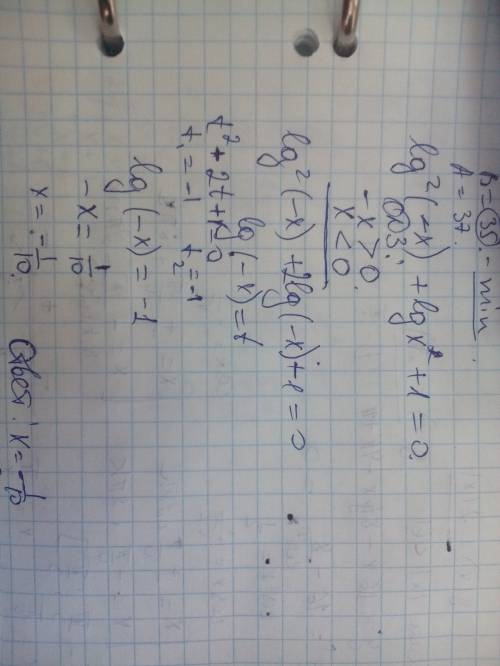 B = 35 - min
A = 37.
lg²(-x) + lg x² + 1 = 0.
ОДЗ:
-x > 0.
x < 0.
lg²(-x) + 2lg(-x) + 1 = 0
lg(-x) = t
t² + 2t + 1 = 0
t₁ = -1 t₂ = -1
lg(-x) = -1
-x = 1/10
x = -1/10.
Ответ: x = -1/10